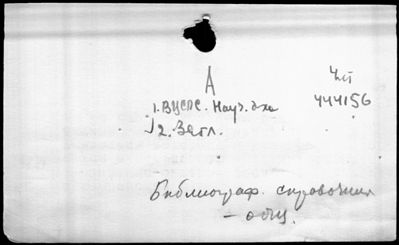 А
Чт
444156
1. ВЦСПС. Науч.
2. Загл.
Библиограф. справочник
- общ.